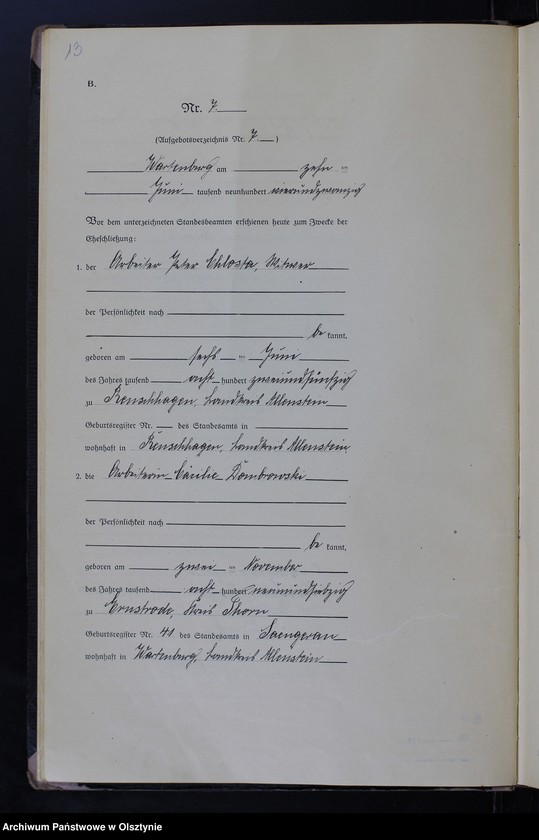 13
B.
Nr. 7.
(Aufgebotsverzeichnis Nr. 7.)
Wartenberg am zehn ten
Juni tausend neunhundert vierundzwanzig
Vor dem unterzeichneten Standesbeamten erschienen heute zum Zwecke der
Eheschließung:
1. der Arbeiter Peter Chlosta, Witwer
der Persönlichkeit nach
be kannt,
geboren am sechs ten Juni
des Jahres tausend acht hundert zweiundfünfzig
zu Renschhagen, Landkreis Allenstein
Geburtsregister Nr. des Standesamts in
wohnhaft in Renschhagen, Landkreis Allenstein
2. die Arbeiterin Cäcilie Dombrowski
der Persönlichkeit nach
be kannt,
geboren am zwei ten November
des Jahres tausend acht hundert neunundsiebzig
zu Ernstrode, Kreis Thorn
Geburtsregister Nr. 41 des Standesamts in Saengerau
wohnhaft in Wartenberg, Landkreis Allenstein
Archiwum Państwowe w Olsztynie